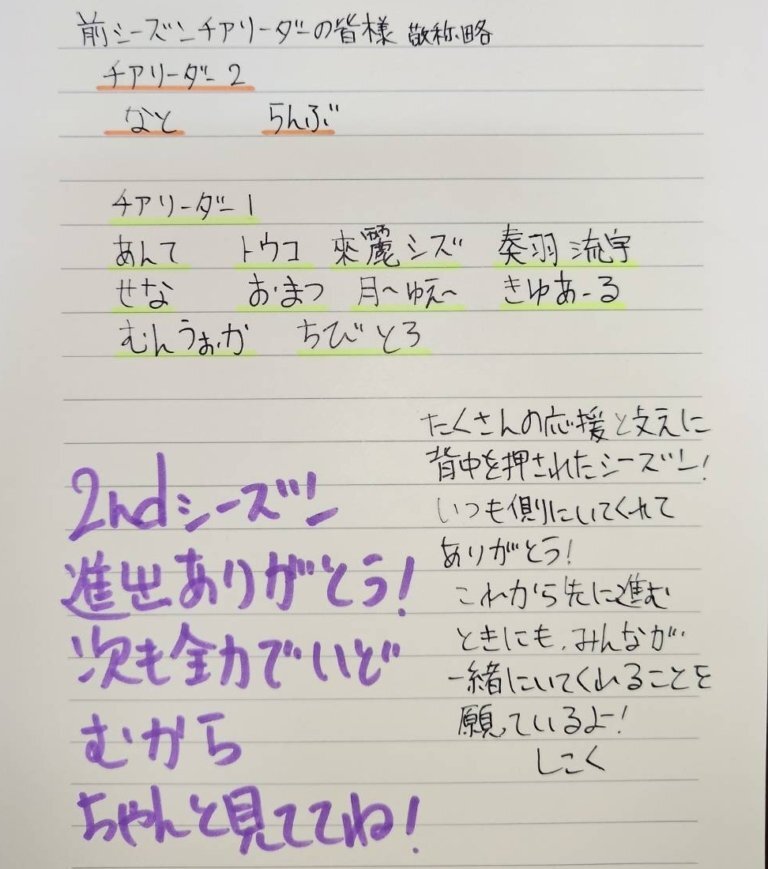 前シーズンチアリーダーの皆様 敬称略
チアリーダー2
なと らんぶ
チアリーダー1
あんて トウコ 來麗シズ 奏羽流宇
せな おまつ 月〜ゆえ〜 きゆあーる
むんうぉか ちびとろ
たくさんの応援と支えに
背中を押されたシーズン!
いつも側にいてくれて
ありがとう!
これから先に進む
ときにも、みんなが
一緒にいてくれることを
願っているよ!
しこく
2ndシーズン
進出ありがとう!
次も全力でいど
むから
ちゃんと見ててね!